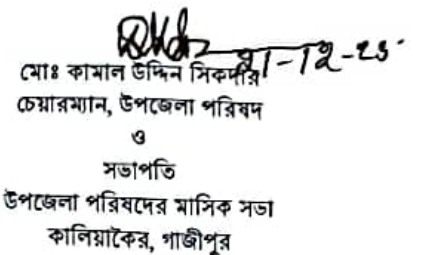 21-12-23
মোঃ কামাল উদ্দিন সিকদার
চেয়ারম্যান, উপজেলা পরিষদ
ও
সভাপতি
উপজেলা পরিষদের মাসিক সভা
কালিয়াকৈর, গাজীপুর